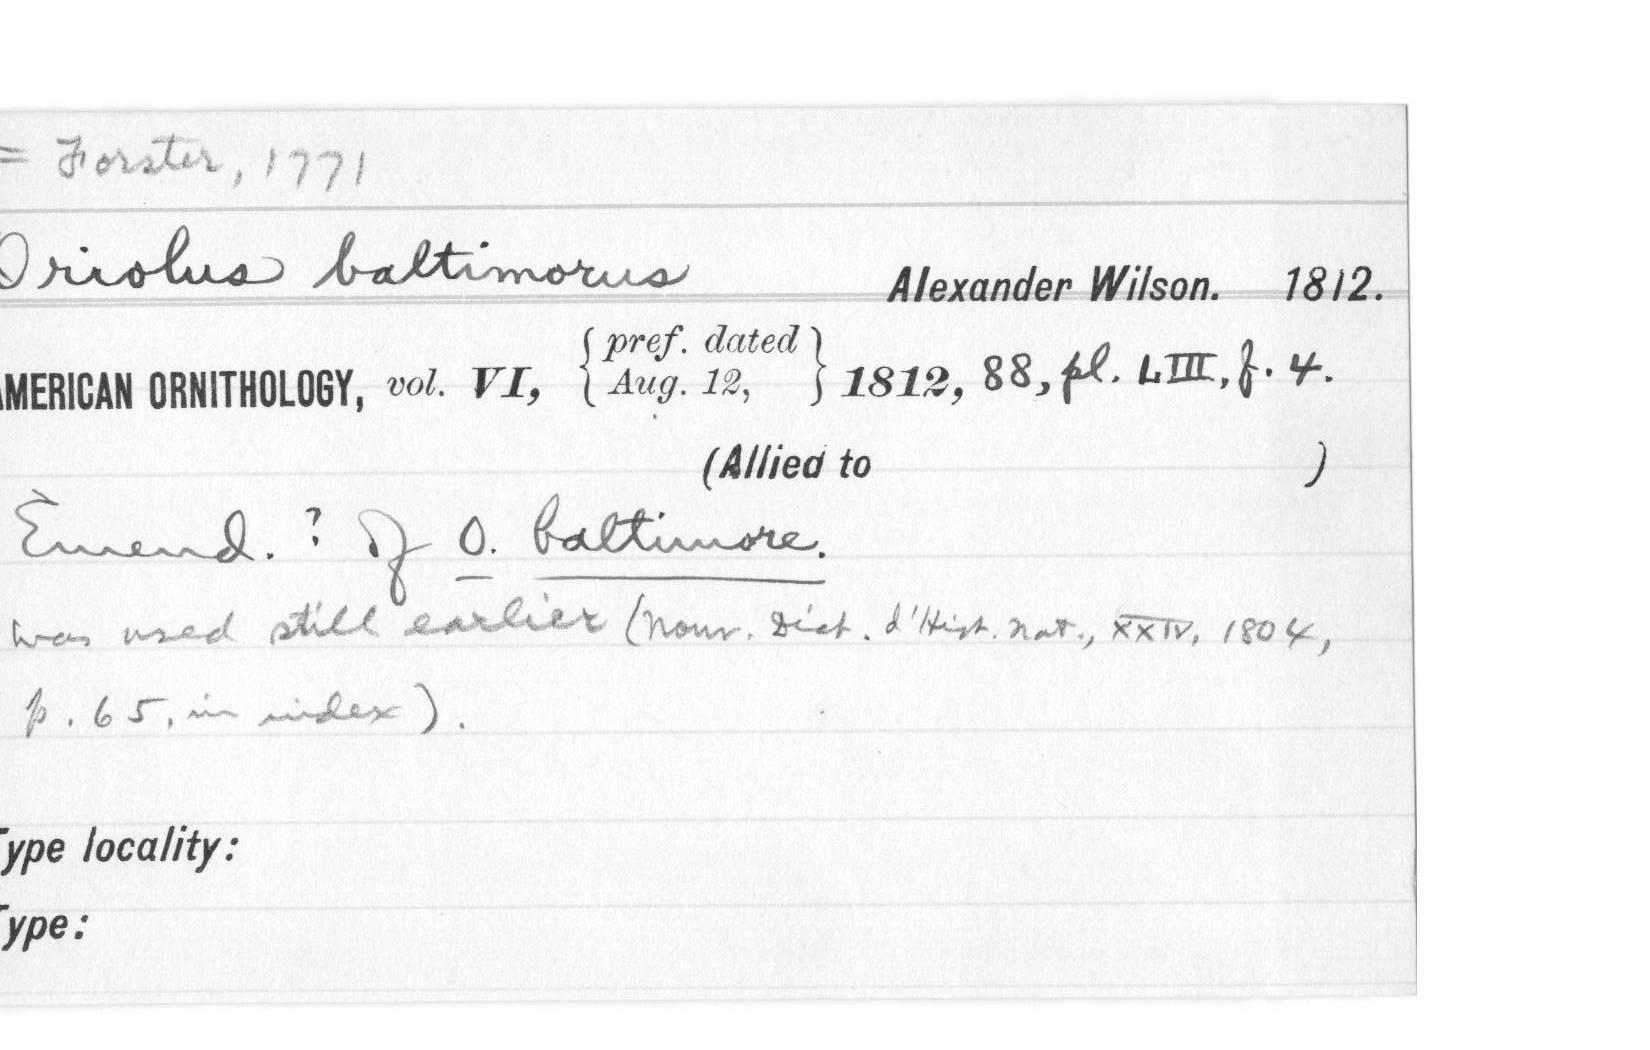 = Forster, 1771
Oriolus baltimorus Alexander Wilson. 1812.
AMERICAN ORNITHOLOGY, vol. VI, { pref. dated Aug. 12, } 1812, 88, pl. LIII, f. 4.
(Allied to )
Emend. ? of O. baltimore.
was used still earlier (Nouv. Dict. d'Hist. Nat., XXIV, 1804,
p. 65, in index).
Type locality:
Type: